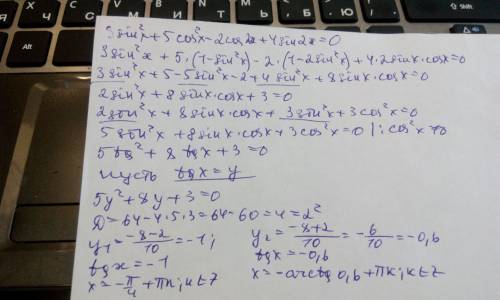 3sin²x+5cos²x-2cos2x+4sin2x=0
3sin²x+5·(1-sin²x)-2·(1-2sin²x)+4·2sinx·cosx=0
3sin²x+5-5sin²x-2+4sin²x+8sinx·cosx=0
2sin²x+8sinx·cosx+3=0
2sin²x+8sinx·cosx+3sin²x+3cos²x=0
5sin²x+8sinx·cosx+3cos²x=0 |: cos²x≠0
5tg²+8tgx+3=0
пусть tgx=y
5y²+8y+3=0
D=64-4·5·3=64-60=4=2²
y₁=(-8-2)/10=-1; y₂=(-8+2)/10=-6/10=-0,6
tgx=-1 tgx=-0,6
x=-π/4+πk; k∈Z x=-arctg0,6+πk; k∈Z